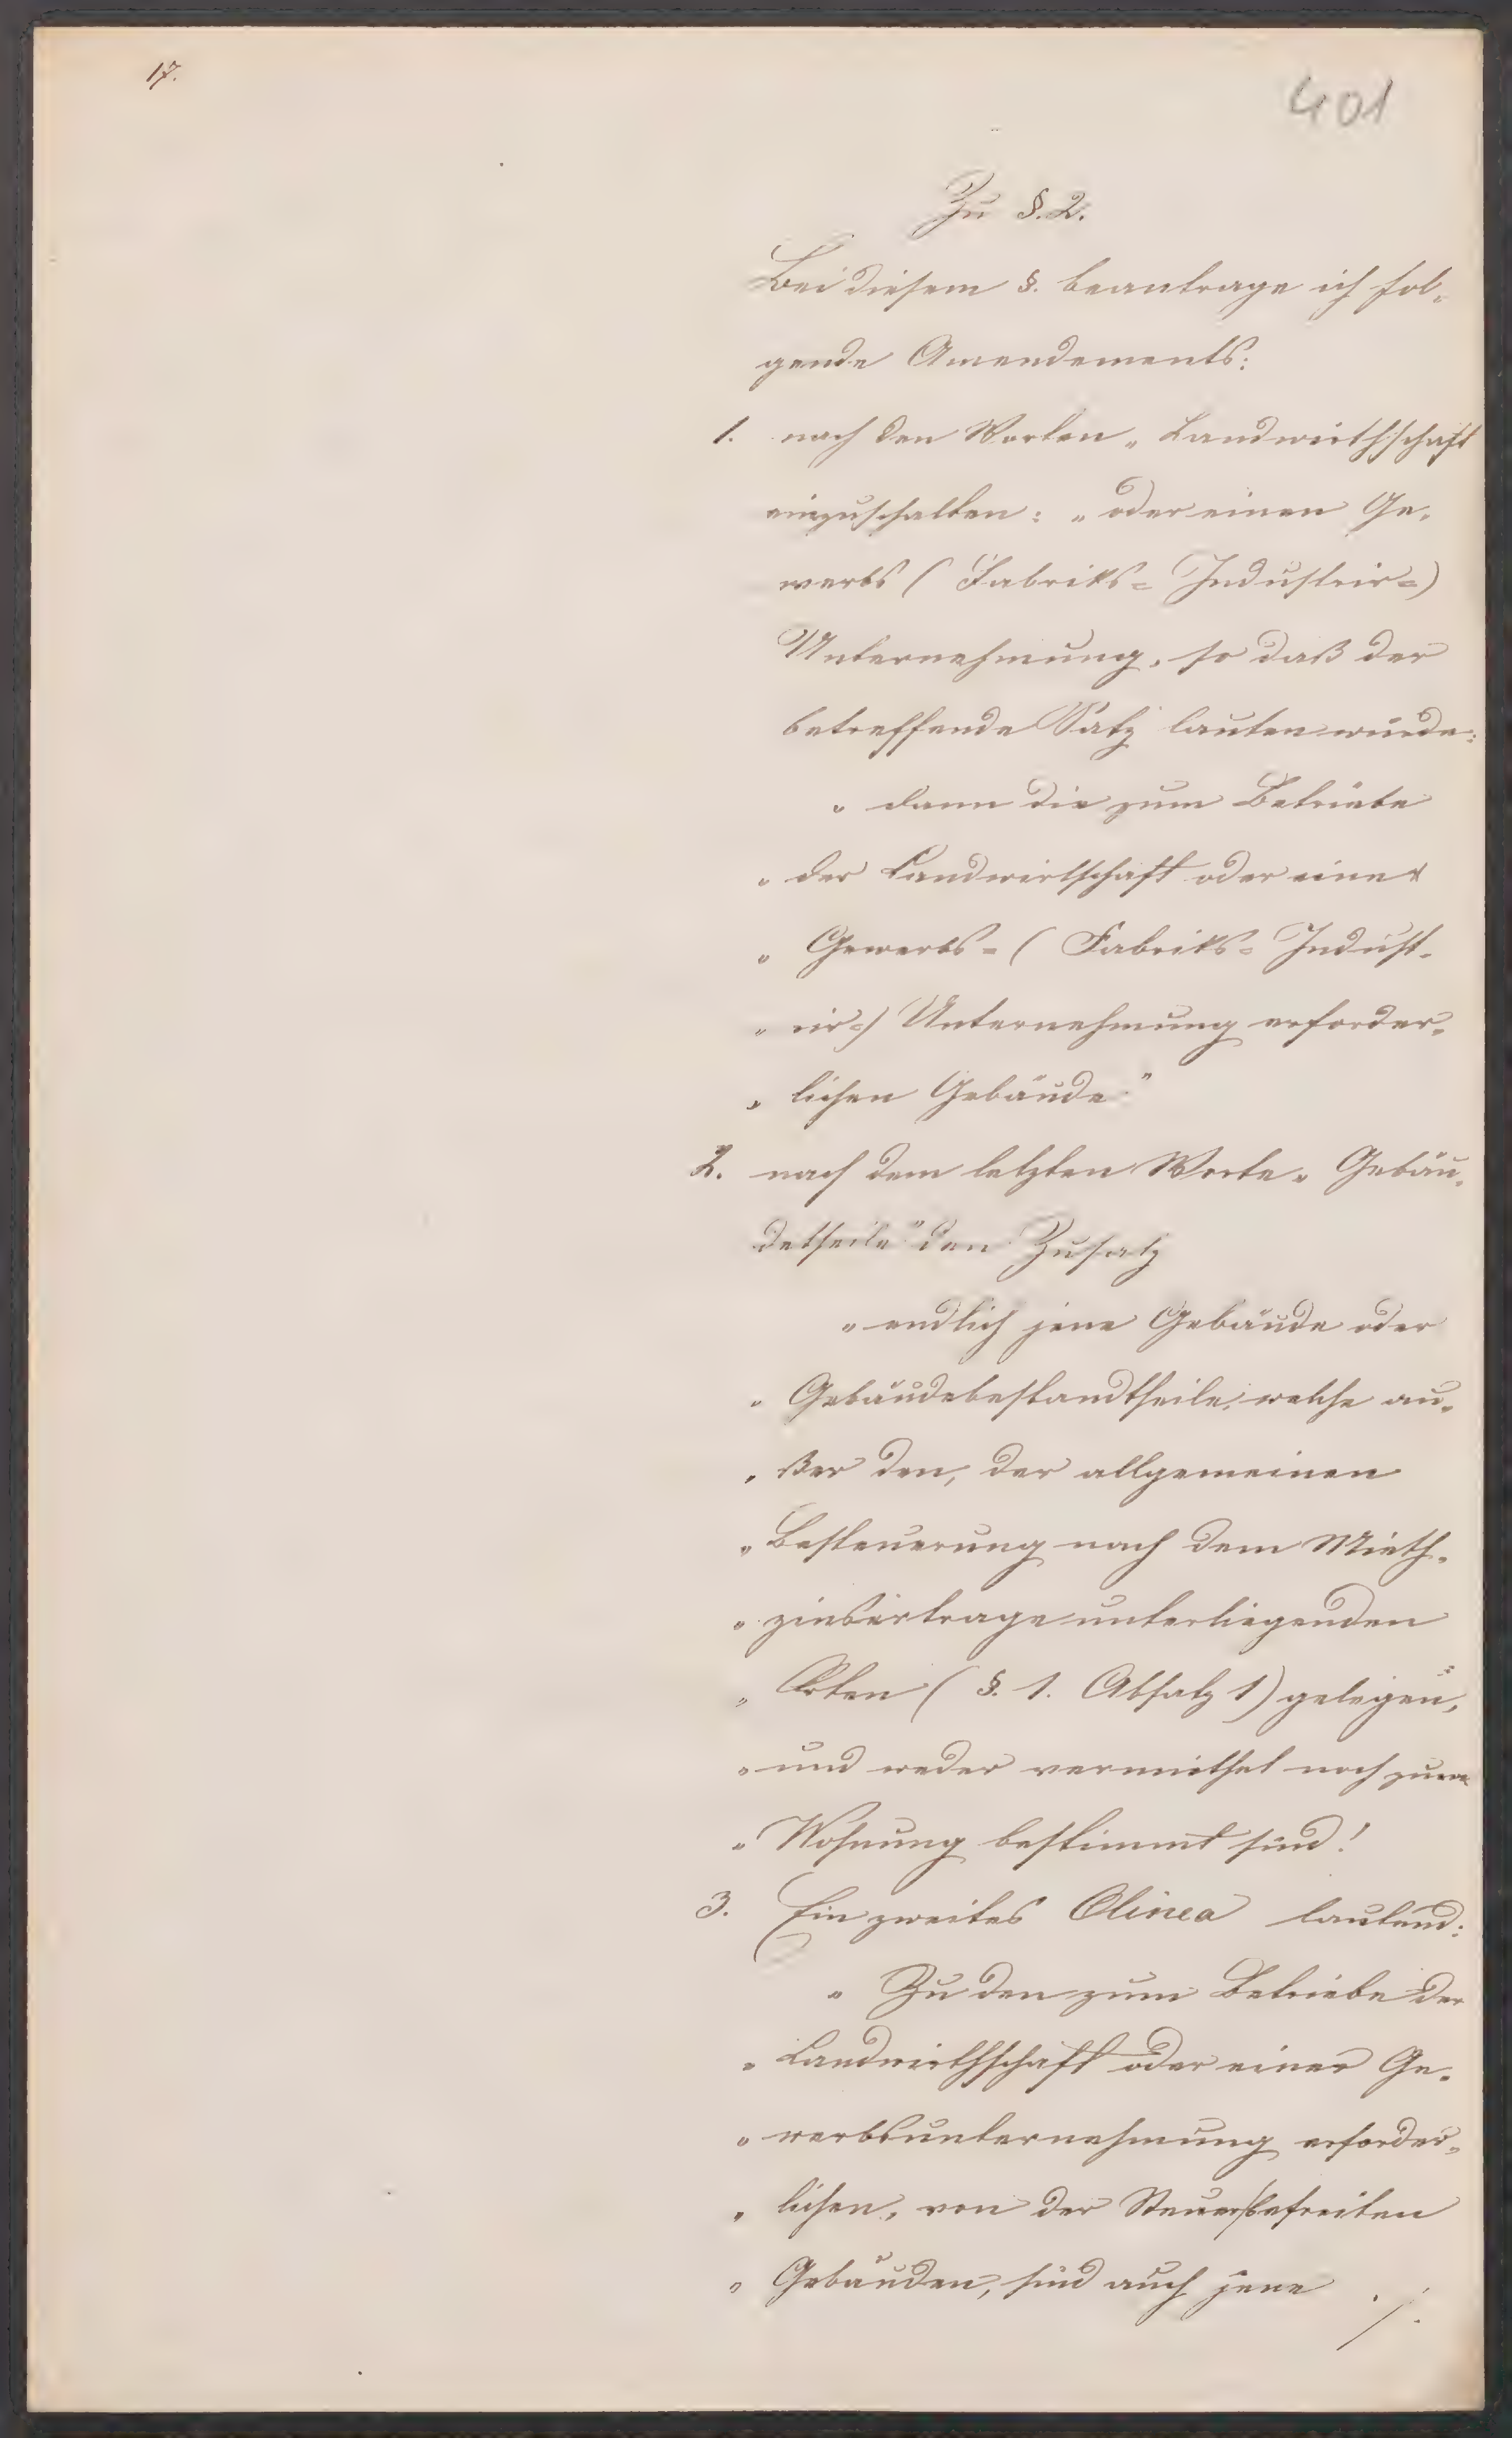 17.
401
Zu §. 2.
Bei diesem §. beantrage ich fol„
gende Amendements:
1. nach den Worten „Landwirthschaft
einzuschalten: „oder einen Ge„
werbs (Fabriks= Industrie=)
Unternehmung, so daß der
betreffende Satz lauten würde:
„dann die zum Betriebe
„der Landwirtschaft oder einer
„Gewerbs=(Fabriks= Indust„
„rie=) Unternehmung erforder„
„lichen Gebäude"
2. nach dem letzten Worte „Gebäu„
detheile" den Zusatz
„endlich jene Gebäude oder
„Gebäudebestandtheile, welche au„
„ßer den, der allgemeinen
„Besteuerung nach dem Mieth„
„zinsertrage unterliegenden
„Orten (§. 1. Absatz 1) gelegen,
„und weder vermiethet noch zur
„Wohnung bestimmt sind!
3. Ein zweites Alinea lautend:
„Zu den zum Betriebe der
„Landwirthschaft oder einer Ge„
„werbsunternehmung erforder„
„lichen, von der Steuer befreiten
„Gebäuden, sind auch jene ./.